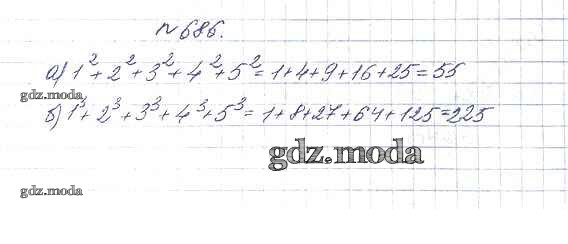 № 686.
а) 1² + 2² + 3² + 4² + 5² = 1 + 4 + 9 + 16 + 25 = 55
gdz.moda
б) 1³ + 2³ + 3³ + 4³ + 5³ = 1 + 8 + 27 + 64 + 125 = 225
gdz.moda
gdz.moda